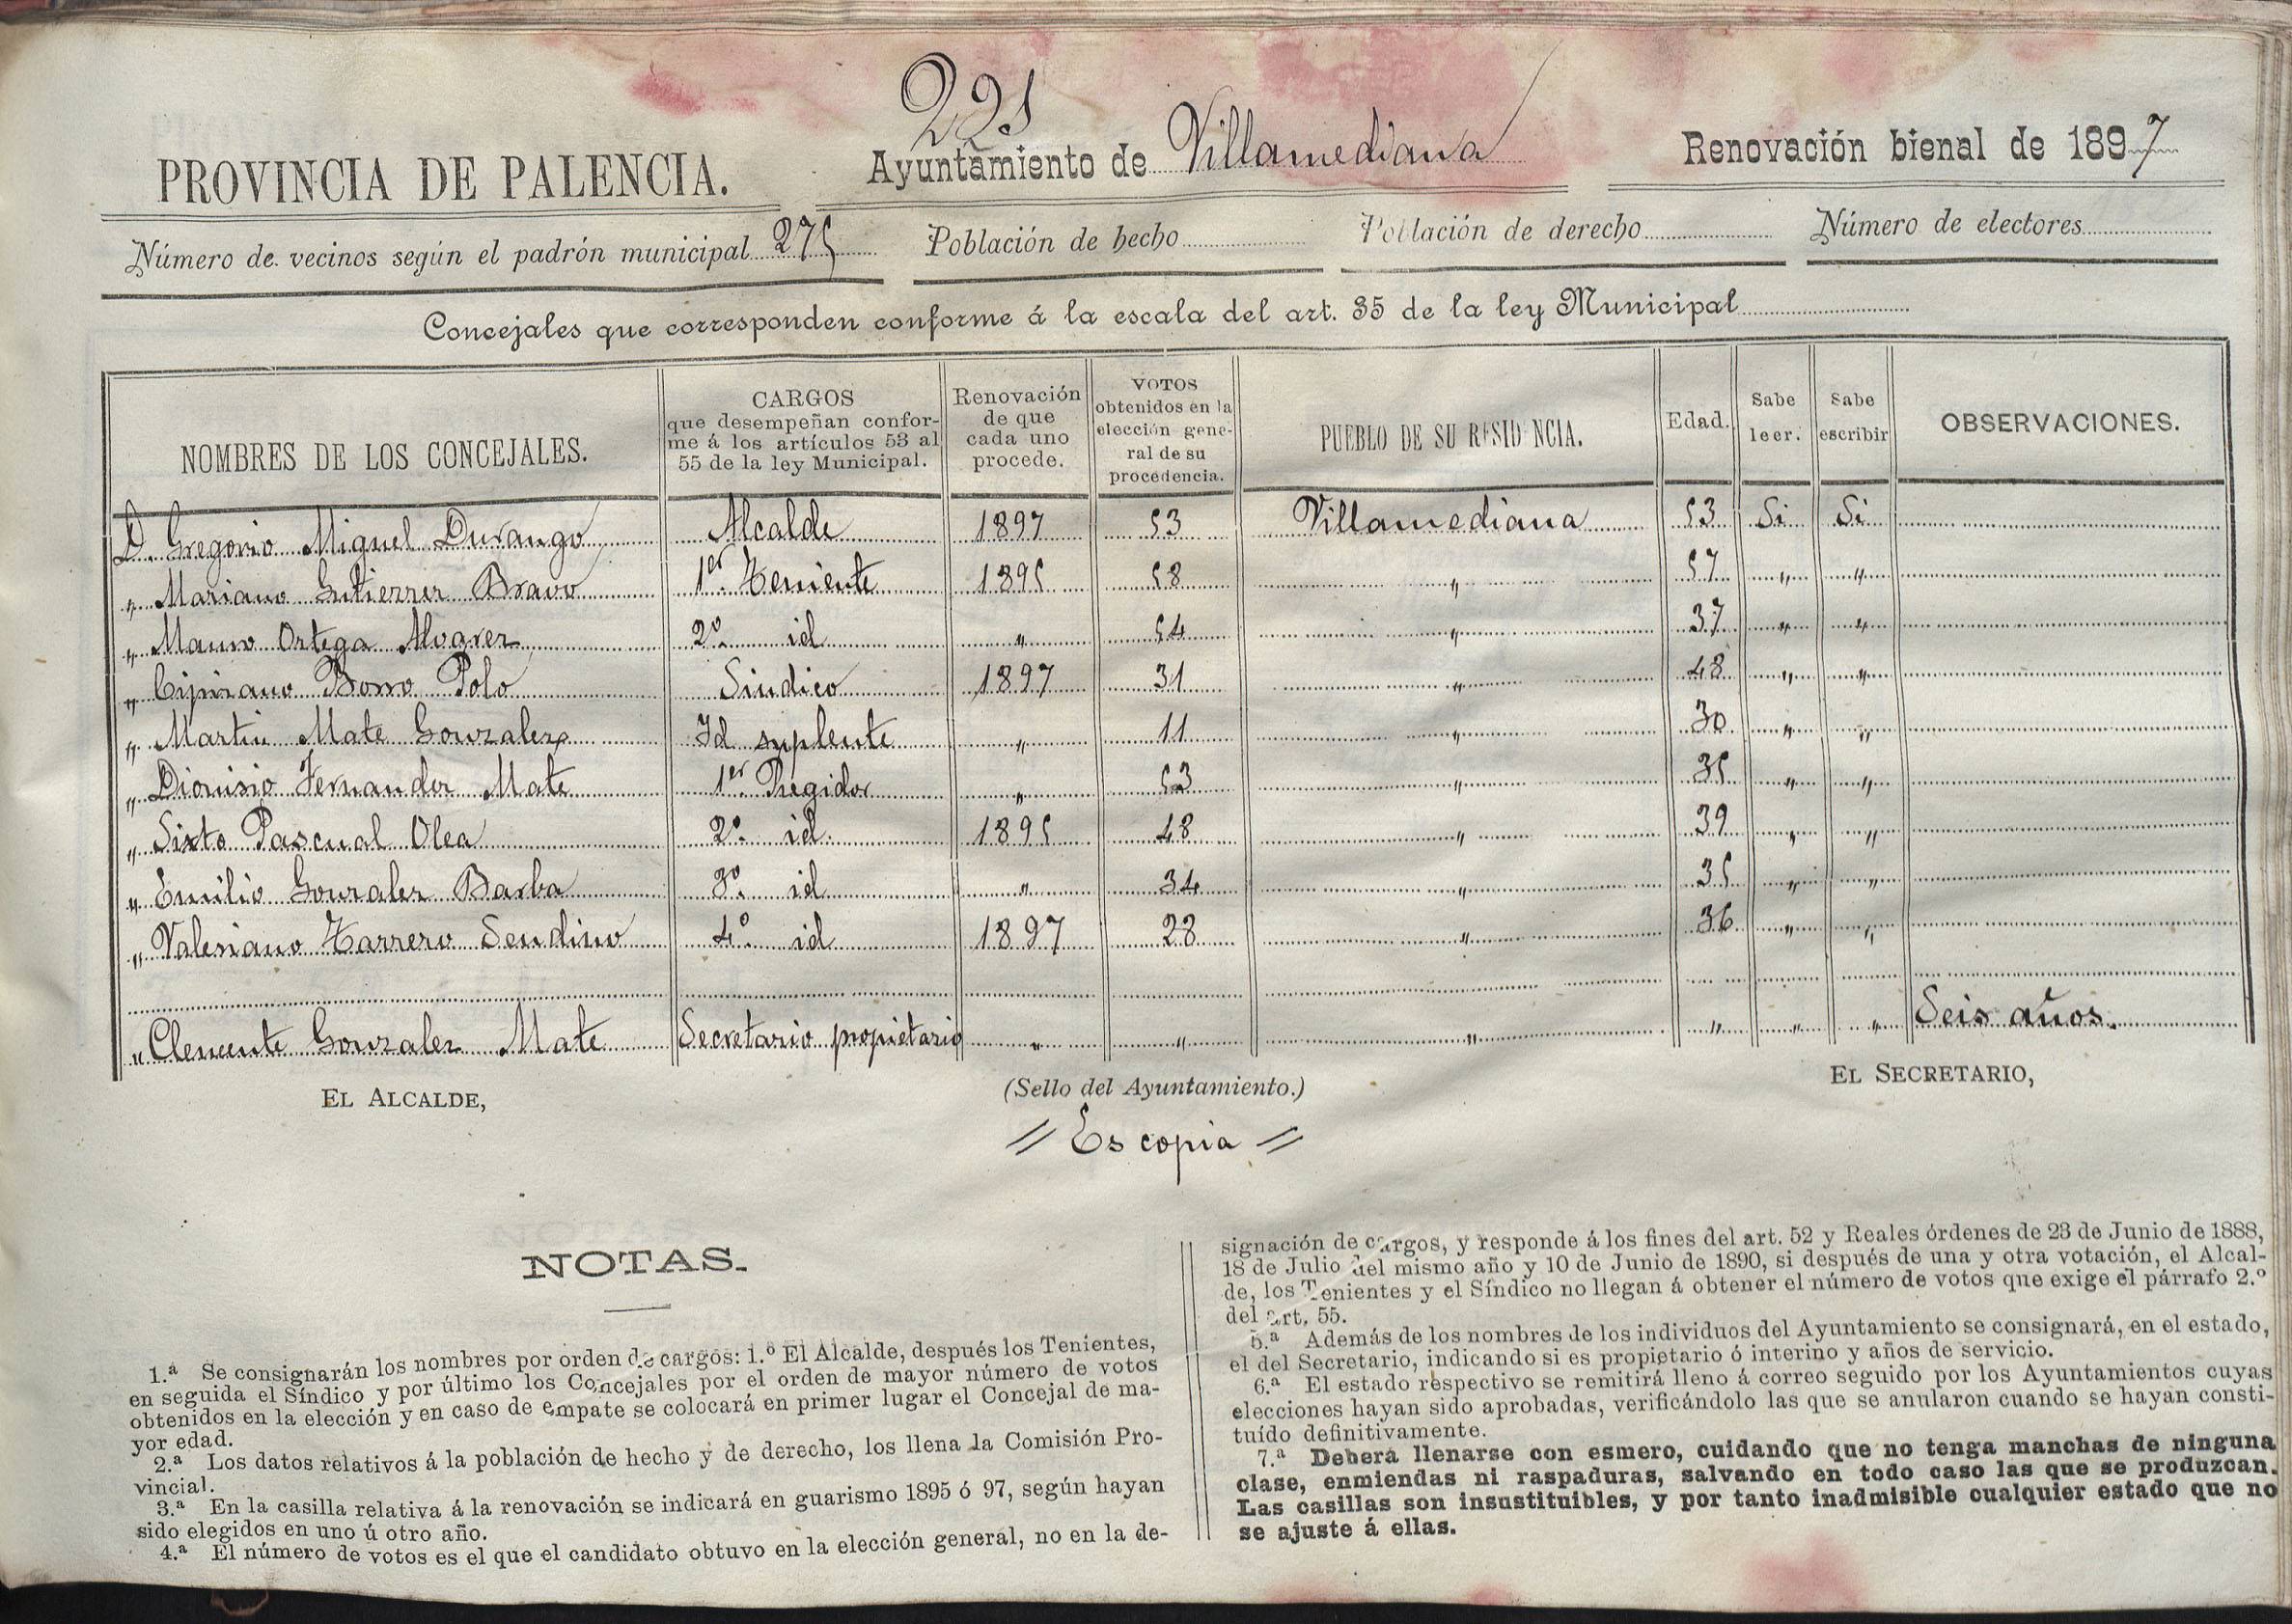 221
PROVINCIA DE PALENCIA.
Ayuntamiento de Villamediana
Renovación bienal de 1897
Número de vecinos según el padrón municipal 275
Población de hecho
Población de derecho
Número de electores
Concejales que corresponden conforme á la escala del art. 35 de la ley Municipal
NOMBRES DE LOS CONCEJALES. | CARGOS que desempeñan confor-me á los artículos 53 al 55 de la ley Municipal. | Renovación de que cada uno procede. | VOTOS obtenidos en la elección gene-ral de su procedencia. | PUEBLO DE SU RESIDENCIA. | Edad. | Sabe leer. | Sabe escribir | OBSERVACIONES.
D. Gregorio Miguel Durango | Alcalde | 1897 | 53 | Villamediana | 53 | Si | Si
" Mariano Gutierrez Bravo | 1er Teniente | 1895 | 58 | " | 57 | " | "
" Mauro Ortega Alvarez | 2º id | " | 54 | " | 37 | " | "
" Cipriano Borro Polo | Sindico | 1897 | 31 | " | 48 | " | "
" Martin Mate Gonzalez | Id suplente | " | 11 | " | 30 | " | "
" Dionisio Fernandez Mate | 1er Regidor | " | 53 | " | 35 | " | "
" Sixto Pascual Olea | 2º id. | 1895 | 48 | " | 39 | " | "
" Emilio Gonzalez Barba | 3º id | " | 34 | " | 35 | " | "
" Valeriano Tarrero Sendino | 4º id | 1897 | 28 | " | 36 | " | "
" Clemente Gonzalez Mate | Secretario propietario | " | " | " | " | " | " | Seis años.
EL ALCALDE,
(Sello del Ayuntamiento.)
EL SECRETARIO,
// Es copia //
NOTAS.
1.ª Se consignarán los nombres por orden de cargos: 1.º El Alcalde, después los Tenientes,
en seguida el Síndico y por último los Concejales por el orden de mayor número de votos
obtenidos en la elección y en caso de empate se colocará en primer lugar el Concejal de ma-
yor edad.
2.ª Los datos relativos á la población de hecho y de derecho, los llena la Comisión Pro-
vincial.
3.ª En la casilla relativa á la renovación se indicará en guarismo 1895 ó 97, según hayan
sido elegidos en uno ú otro año.
4.ª El número de votos es el que el candidato obtuvo en la elección general, no en la de-
signación de cargos, y responde á los fines del art. 52 y Reales órdenes de 23 de Junio de 1888,
18 de Julio del mismo año y 10 de Junio de 1890, si después de una y otra votación, el Alcal-
de, los Tenientes y el Síndico no llegan á obtener el número de votos que exige el párrafo 2.º
del art. 55.
5.ª Además de los nombres de los individuos del Ayuntamiento se consignará, en el estado,
el del Secretario, indicando si es propietario ó interino y años de servicio.
6.ª El estado respectivo se remitirá lleno á correo seguido por los Ayuntamientos cuyas
elecciones hayan sido aprobadas, verificándolo las que se anularon cuando se hayan consti-
tuído definitivamente.
7.ª Deberá llenarse con esmero, cuidando que no tenga manchas de ninguna
clase, enmiendas ni raspaduras, salvando en todo caso las que se produzcan.
Las casillas son insustituibles, y por tanto inadmisible cualquier estado que no
se ajuste á ellas.